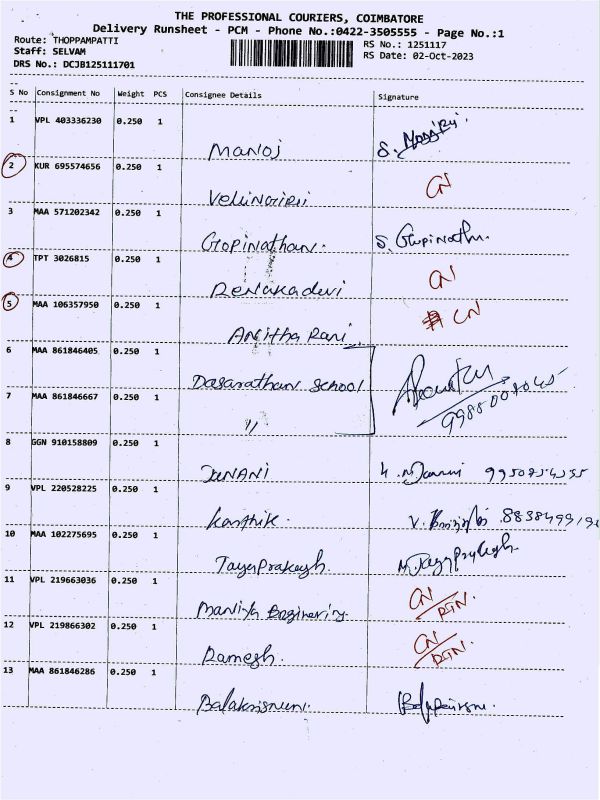 THE PROFESSIONAL COURIERS, COIMBATORE
Delivery Runsheet - PCM - Phone No.:0422-3505555 - Page No.:1
Route: THOPPAMPATTI RS No.: 1251117
Staff: SELVAM RS Date: 02-Oct-2023
DRS No.: DCJB125111701
S No Consignment No Weight PCS Consignee Details Signature
1 VPL 403336230 0.250 1
Manoj S.
2 KUR 695574656 0.250 1 CN
3 MAA 571202342 0.250 1
Gopinathan. S. Gopinathn.
4 TPT 3026815 0.250 1 CN
Renukadevi
5 MAA 106357950 0.250 1 CN
Anitha Rani
6 MAA 861846405 0.250 1
Dasarathan School
7 MAA 861846667 0.250 1
"
8 GGN 910158809 0.250 1
9 VPL 220528225 0.250 1
Karthik. V.
10 MAA 102275695 0.250 1
JayaPrakash.
11 VPL 219663036 0.250 1 CN/RTN.
12 VPL 219866302 0.250 1 CN/RTN.
Ramesh.
13 MAA 861846286 0.250 1